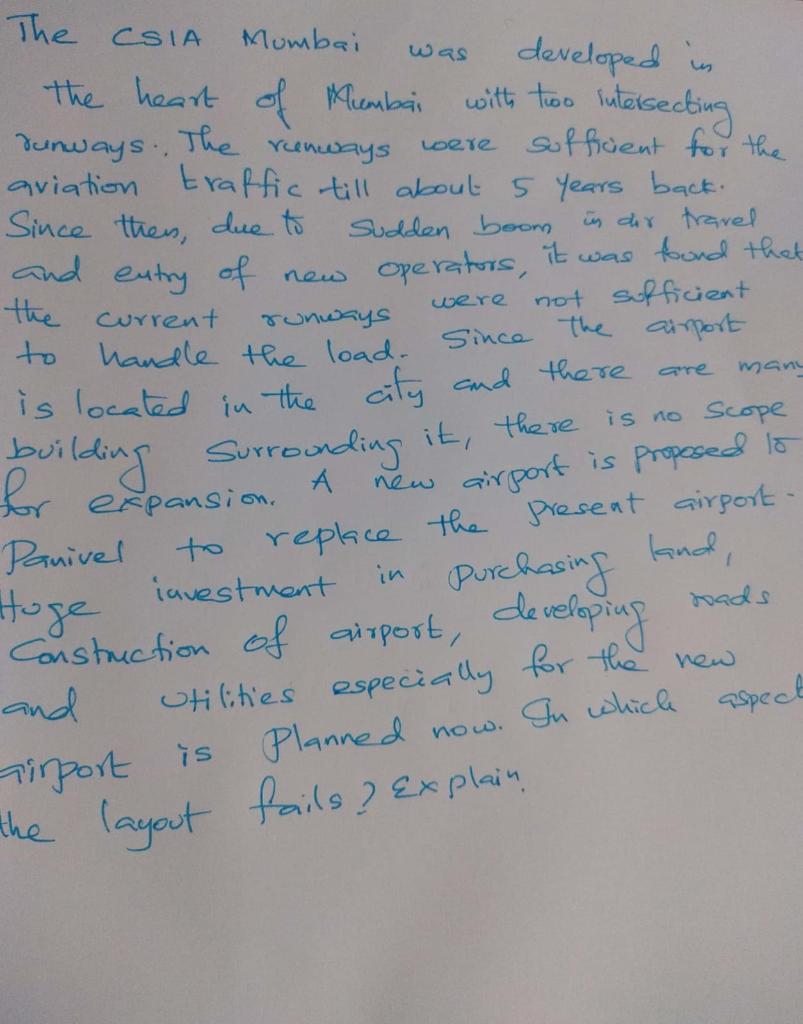 The CSIA Mumbai was developed in
the heart of Mumbai with two intersecting
runways. The runways were sufficient for the
aviation traffic till about 5 years back.
Since then, due to sudden boom in air travel
and entry of new operators, it was found that
the current runways were not sufficient
to handle the load. Since the airport
is located in the city and there are many
building surrounding it, there is no scope
for expansion. A new airport is proposed to
Panivel to replace the present airport.
Huge investment in purchasing land,
Construction of airport, developing roads
and utilities especially for the new
airport is planned now. In which aspect
the layout fails? Explain.